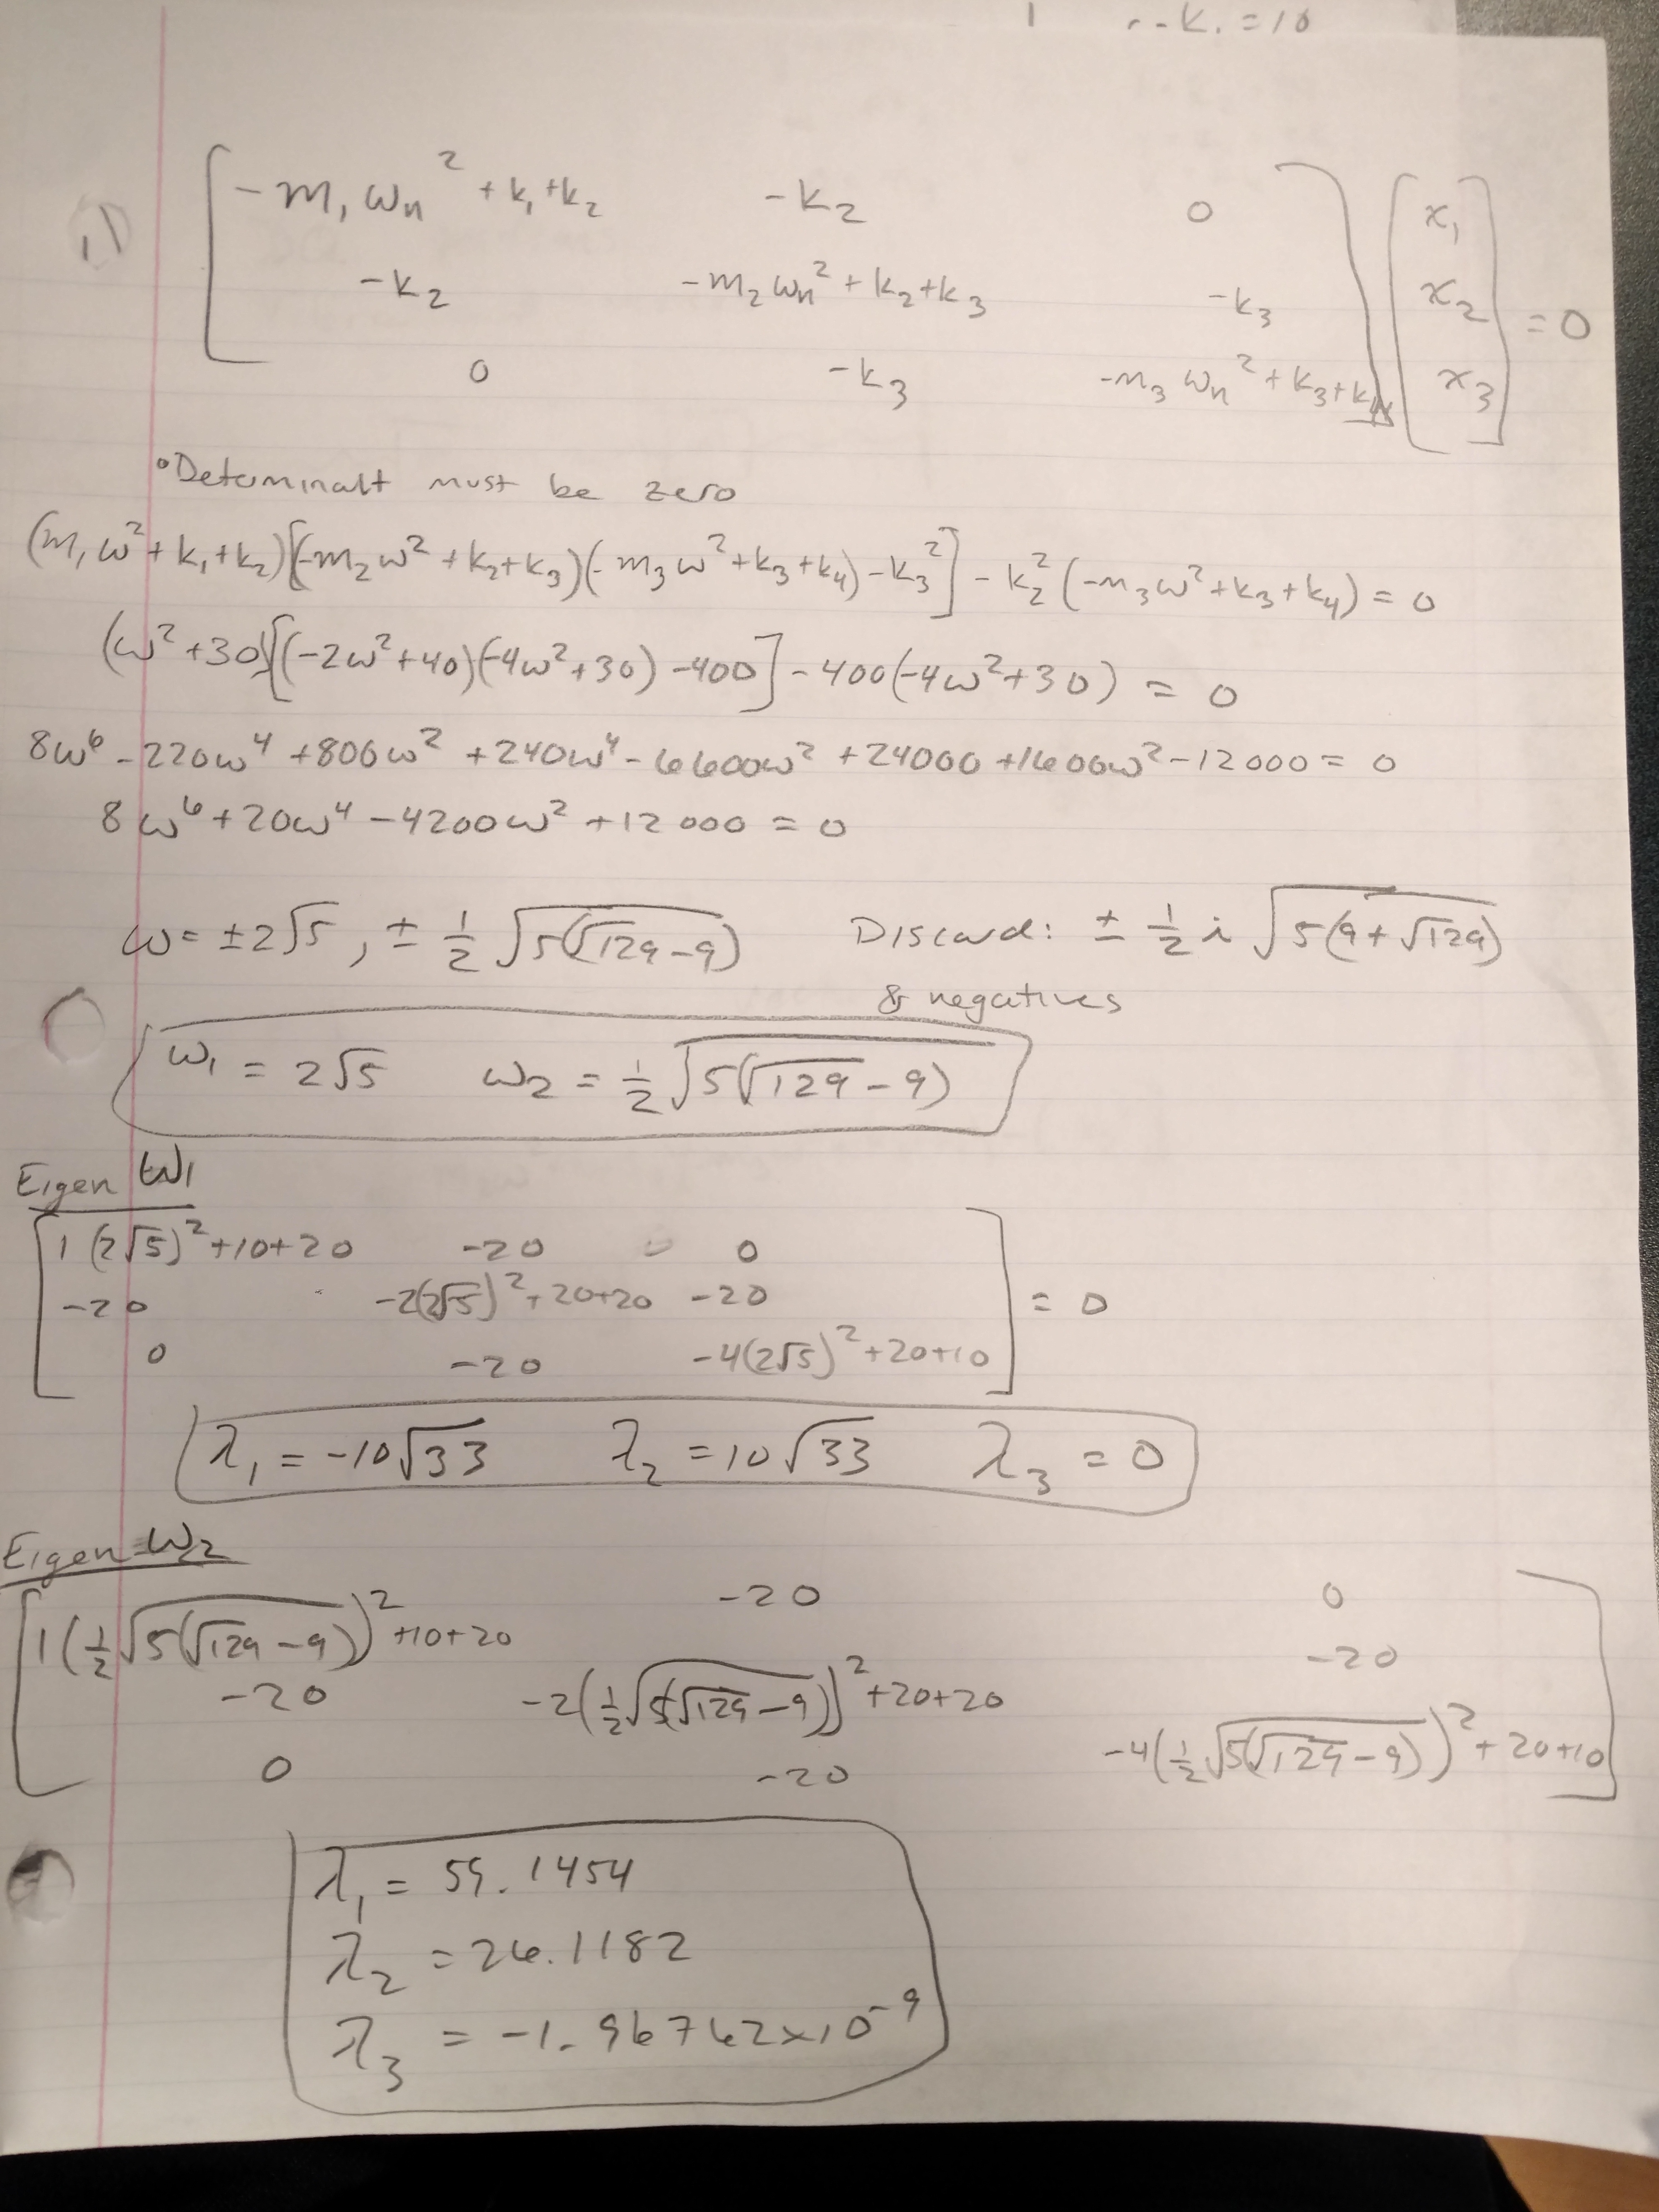 r - k. = 10
1)
[ -m₁ωₙ² + k₁+k₂   -k₂   0 ] [ x₁ ]
[ -k₂   -m₂ωₙ² + k₂+k₃   -k₃ ] [ x₂ ] = 0
[ 0   -k₃   -m₃ωₙ² + k₃+k₄ ] [ x₃ ]
•Determinalt must be zero
(m₁ω²+k₁+k₂)[(-m₂ω²+k₂+k₃)(-m₃ω²+k₃+k₄)-k₃²] - k₂²(-m₃ω²+k₃+k₄) = 0
(ω²+30)[(-2ω²+40)(-4ω²+30)-400] - 400(-4ω²+30) = 0
8ω⁶ - 220ω⁴ + 800ω² + 240ω⁴ - 6600ω² + 24000 + 1600ω² - 12000 = 0
8ω⁶ + 20ω⁴ - 4200ω² + 12000 = 0
ω = ±2√5, ± ½√(5(√129-9))   Discard: ± ½ i √(5(9+√129))
& negatives
ω₁ = 2√5   ω₂ = ½√(5(√129-9))
Eigen ω₁
[ 1(2√5)²+10+20   -20   0 ]
[ -20   -2(2√5)²+20+20   -20 ] = 0
[ 0   -20   -4(2√5)²+20+10 ]
λ₁ = -10√33   λ₂ = 10√33   λ₃ = 0
Eigen ω₂
[ 1(½√(5(√129-9)))²+10+20   -20   0 ]
[ -20   -2(½√(5(√129-9)))²+20+20   -20 ]
[ 0   -20   -4(½√(5(√129-9)))²+20+10 ]
λ₁ = 59.1454
λ₂ = 26.1182
λ₃ = -1.96762×10⁻⁹